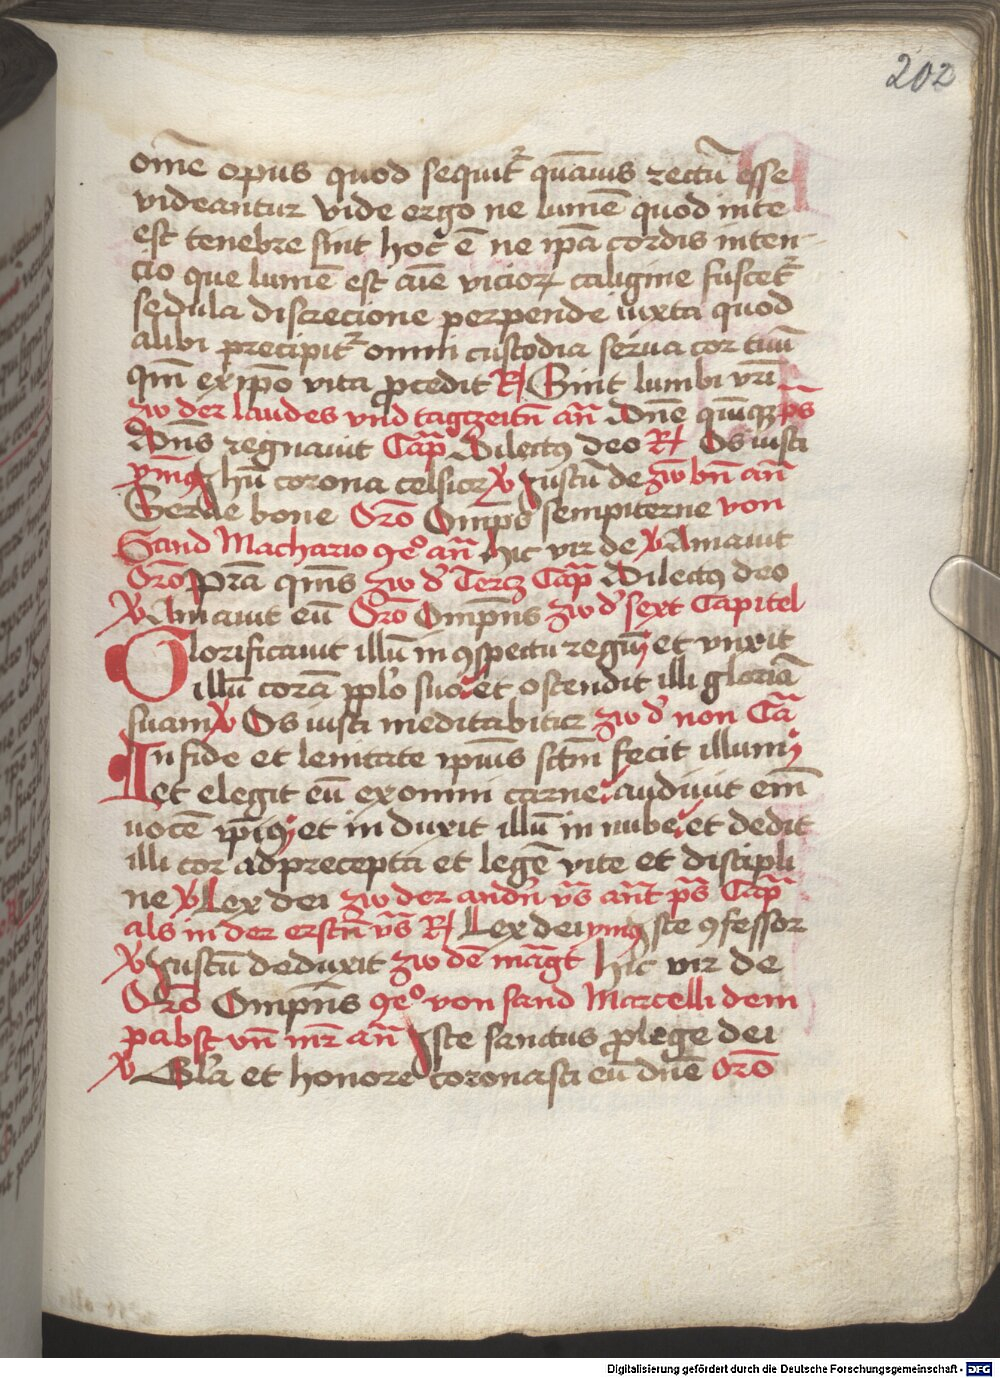 202
om̄e opus quod sequit᷑ quāuis rectū esse
videantur vide ergo ne lumē quod inte
est tenebre sint hoc ē ne ip̄a cordis inten-
cio que lumē est aīe vicioꝝ caligine fuscet᷑
sedula discrecione perpende iuxta quod
alibi precipit᷑ omni custodia serua cor tuū
qm̄ ex ip̄o vita ꝓcedit R Sint lumbi vr̄i
zw der laudes vnd tagtzeitn̄ an̄ Dn̄e quīqꝫ p̄s
Dn̄s regnauit Cap̄ Dilectꝰ deo R Os iusti
ymꝰ Jhū corona celsior ℣ Justū de zw bn̄ an̄
Serue bone Orō Omp̄s sempiterne von
Sand Machario ꝯeͦ an̄ hic vir de ℣ Amauit
Orō Pr̄a qm̄s zw dʼ Tercz Cap̄ Dilectꝰ deo
℣ Amauit eū Orō Omp̄ns zw dʼ sext Capitel
Glorificauit illū in ꝯspectu regū et vnxit
illū corā pp̄lo suo et ostendit illi gloriā
suam ℣ Os iusti meditabitur zw dʼ non Ca̅
In fide et lenitate ipīus sctm̄ fecit illum
et elegit eū ex omni carne audiuit em̄
uocē ip̄ius et in duxit illū in nube et dedit
illi cor ad precepta et legē vite et discipli
ne ℣ Lex dei zw der andn̄ vs̄ ant̄ ps̄ Cap̄
als in der erstn̄ vs̄ R Lex dei ymꝰ Jste ꝯfessor
℣ Justū deduxit zw dē māgt hic vir de
Orō Omp̄ns ꝯeͦ von sand Marcelli dem
pabst vn̄ mr̄ an̄ Iste sanctus ꝓ lege dei
℣ Gl̄a et honore coronasti eū dn̄e Orō
Digitalisierung gefördert durch die Deutsche Forschungsgemeinschaft - DFG